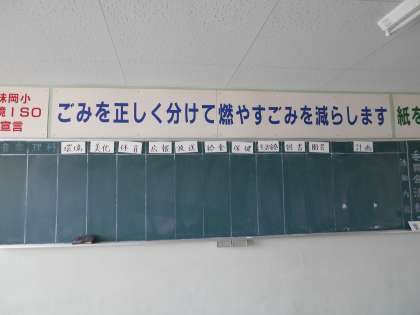 味岡小
境ISO
宣言
ごみを正しく分けて燃やすごみを減らします
紙を
理科 環境 美化 体育 広報 放送 給食 保健 図書 計画